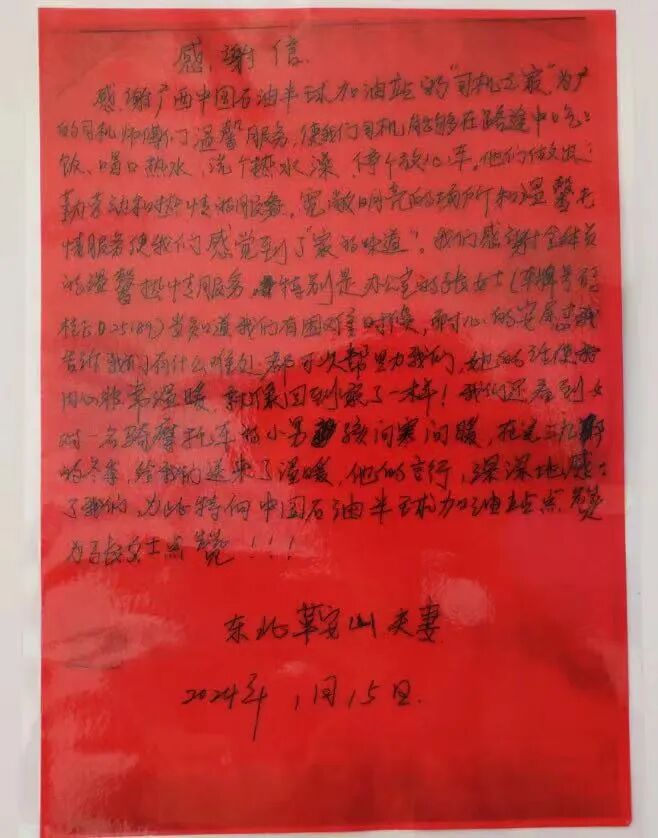 感谢信
感谢广西中国石油半球加油站的“司机之家”为广
的司机师傅们温馨服务，使我们司机能够在路途中吃
饭、喝口热水，洗个热水澡，停个放心车。他们做出
勤劳动和热情的服务，宽敞明亮的场所和温馨
情服务使我们感觉到了“家的味道”。我们感谢全体员
的温馨热情服务，特别是办公室的张女士（车牌号码
）当知道我们有困难时候，耐心的安
告诉我们有什么难处都可以帮助我们，她的
内心非常温暖，就像回到家了一样！我们还看到女
对一名骑摩托车的小男孩问寒问暖，在这三九
的冬季，给我们送来了温暖，他们的言行，深深地感
了我们，为此特向中国石油半球加油站点赞
为张女士点赞！！！
东北鞍山夫妻
2024年1月15日.